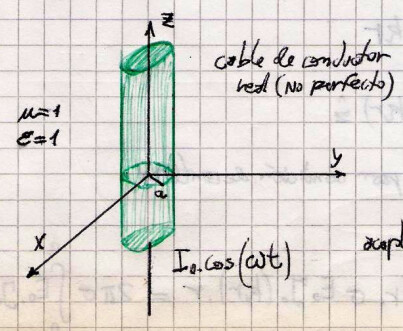 z
cable de conductor
real (No perfecto)
μ=1
ε=1
y
a
x
I₀.cos(ωt)